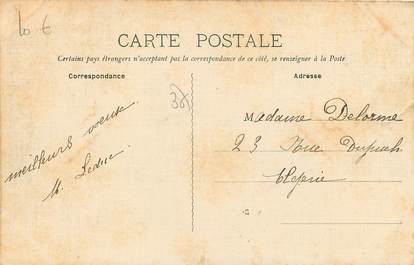 10 €
CARTE POSTALE
Certains pays étrangers n'acceptant pas la correspondance de ce côté, se renseigner à la Poste
Correspondance
Adresse
38
meilleurs voeux
M. Leduc
Madame Delorme
23 Rue Dupuch
Algérie